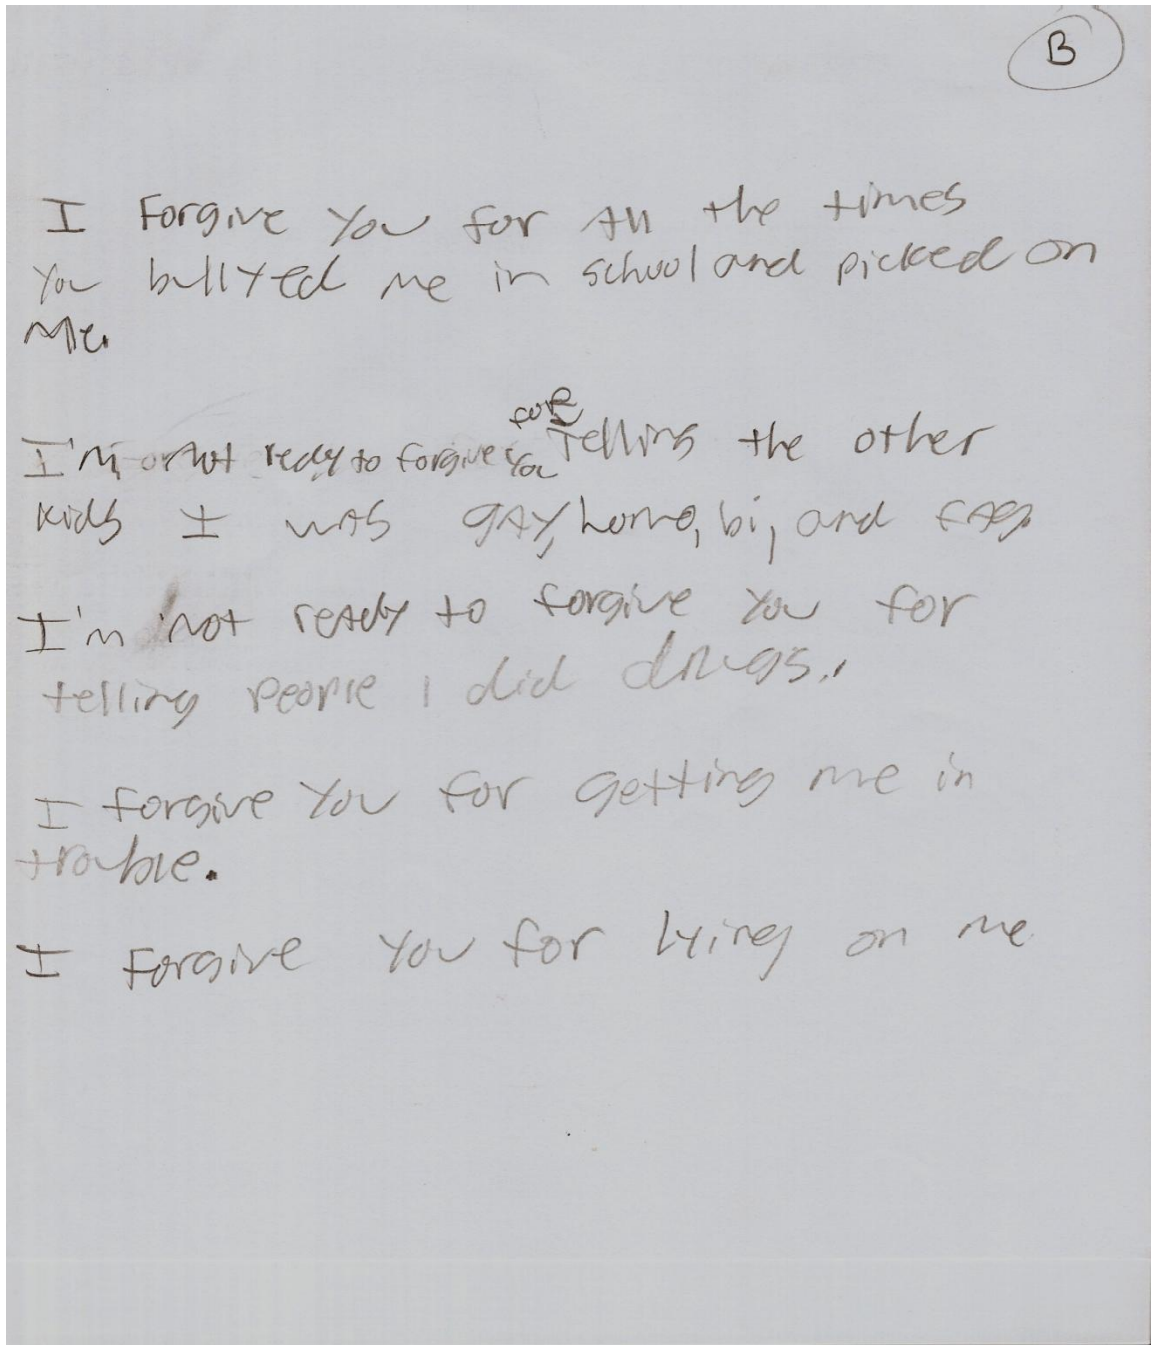 B
I Forgive You for All the times
You bullyed me in school and picked on
Me.
fore
I'm not redy to forgive you Telling the other
kids I was gay, homo, bi, and fag.
I'm not ready to forgive you for
telling people I did drugs.
I forgive You for getting me in
trouble.
I Forgive You for lying on me